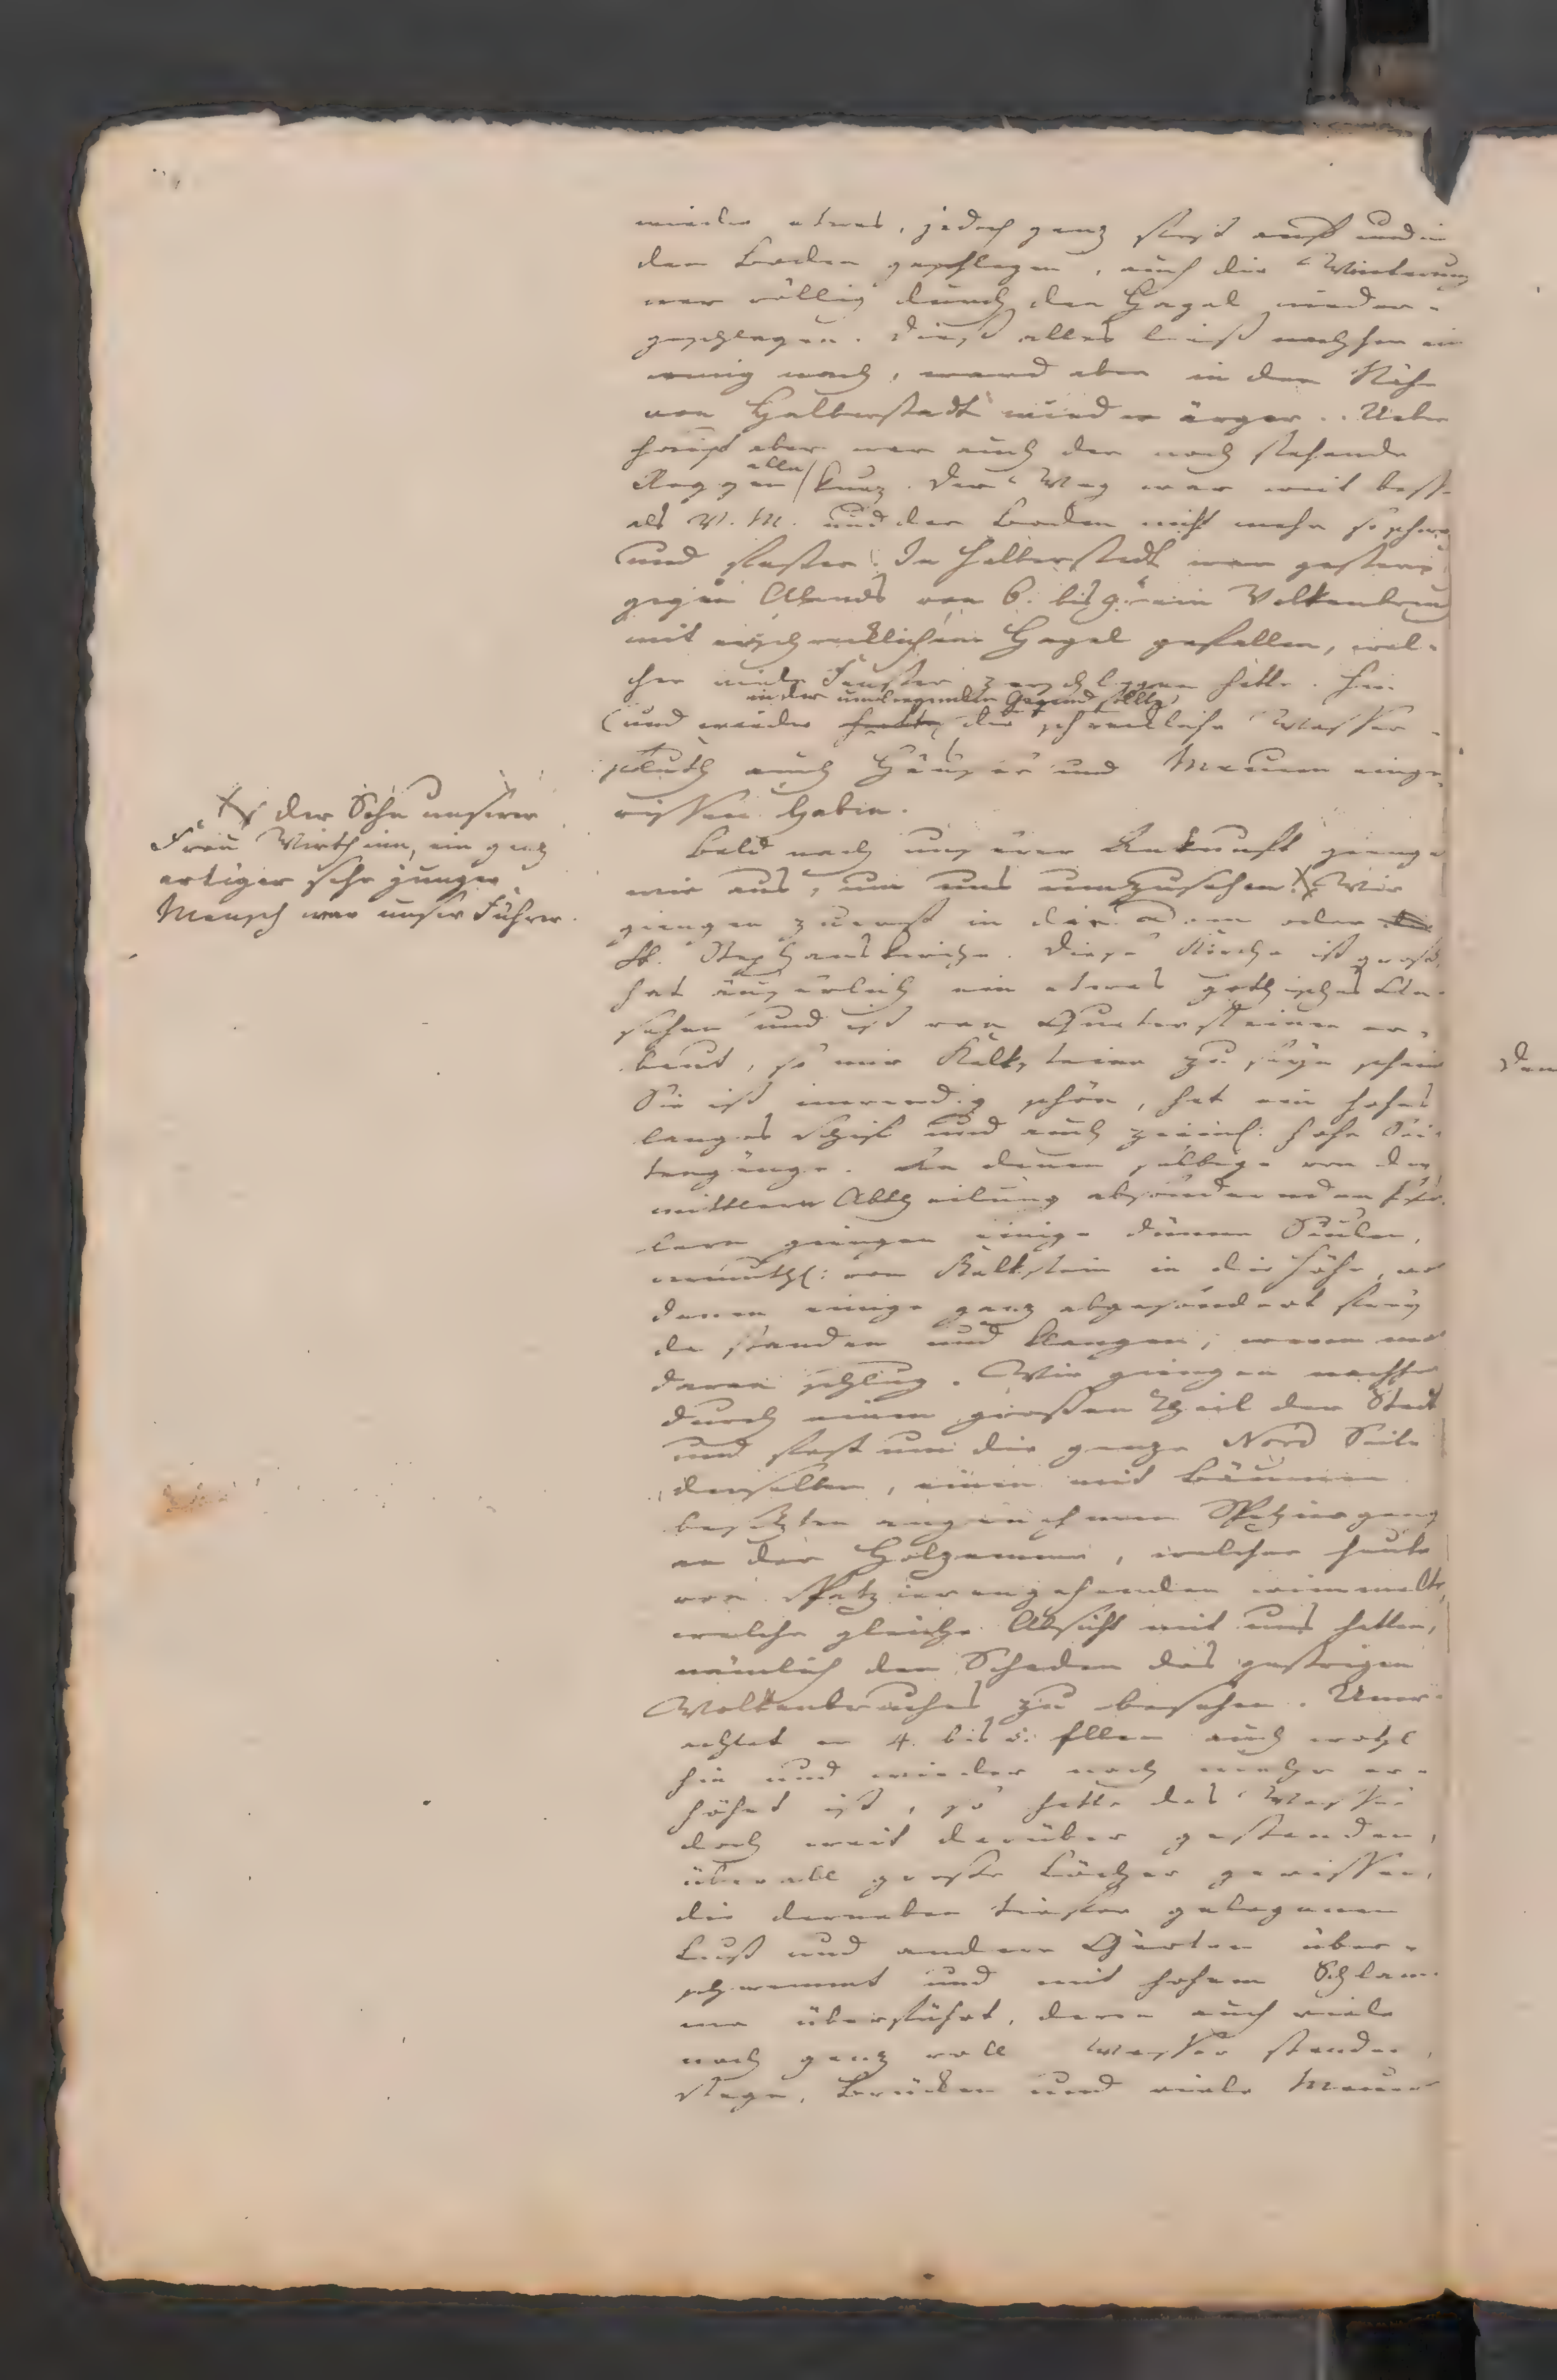 wieder etwas, jedoch ganz fest auf und in
den Boden geschlagen, auch die Winterung
war völlig durch den Hagel nieder-
geschlagen. Dieß alles ließ nachher ein
wenig nach, ward aber in der Nähe
von Halberstadt wieder ärger. Ueber
haupt aber war auch der noch stehende
Roggen alle kurz. Der Weg war weit besser
als V. M. und der Boden nicht mehr so schwer
und fester. In Halberstadt war gestern
gegen Abends von 6. bis 9. ein Wolkenbruch
mit erschrecklichem Hagel gefallen, wel-
cher viele Fenster zerschlagen hatte. Hin
in der umliegenden Gegend sollte
und wieder hatte die schreckliche Wasser-
fluth auch Häuser und Mauern einge-
rissen haben.
Bald nach unserer Ankunft giengen
wir aus, um uns umzusehen. Wir
X der Sohn unserer
Frau Wirthinn, ein ganz
artiger sehr junger
Mensch war unser Führer.
giengen zuerst in die Dom oder
St. Stephanskirche. Diese Kirche ist groß,
hat äuserlich ein etwas gothisches An-
sehen und ist von Quatersteinen er-
baut, so mir Kalksteine zu seyn schein
Sie ist inwendig schön, hat ein hohes
langes Schif und auch zieml: hohe Sei-
tengänge. An denen selbige von der
mittlern Abtheilung absondernden Pfei-
lern giengen einige dünne Säulen,
vermuthl: von Kalkstein in die Höhe, von
denen einige ganz abgesondert frey
da standen und klangen, wenn man
daran schlug. Wir giengen nachher
durch einen großen Theil der Stadt
und fast um die ganze Nord Seite
derselben, einen mit Bäumen
besetzten angenehmen Spatziergang
an der Holzemme, welcher heute
von Spatzierengehenden wimmelte,
welche gleiche Absicht mit uns hatten,
nämlich den Schaden des gestrigen
Wolkenbruches zu besehen. Uner-
achtet er 4. bis 5. Ellen auch wohl
hin und wieder noch mehr er-
höhet ist, so hatte das Wasser
doch weit darüber gestanden,
überall große Löcher gerissen,
die darneben tiefer gelegenen
Lust und andere Gärten über-
schwemmt und mit hohem Schlam-
me überführt, deren auch viele
noch ganz voll Wasser standen,
Stege, Brücken und viele Mauern